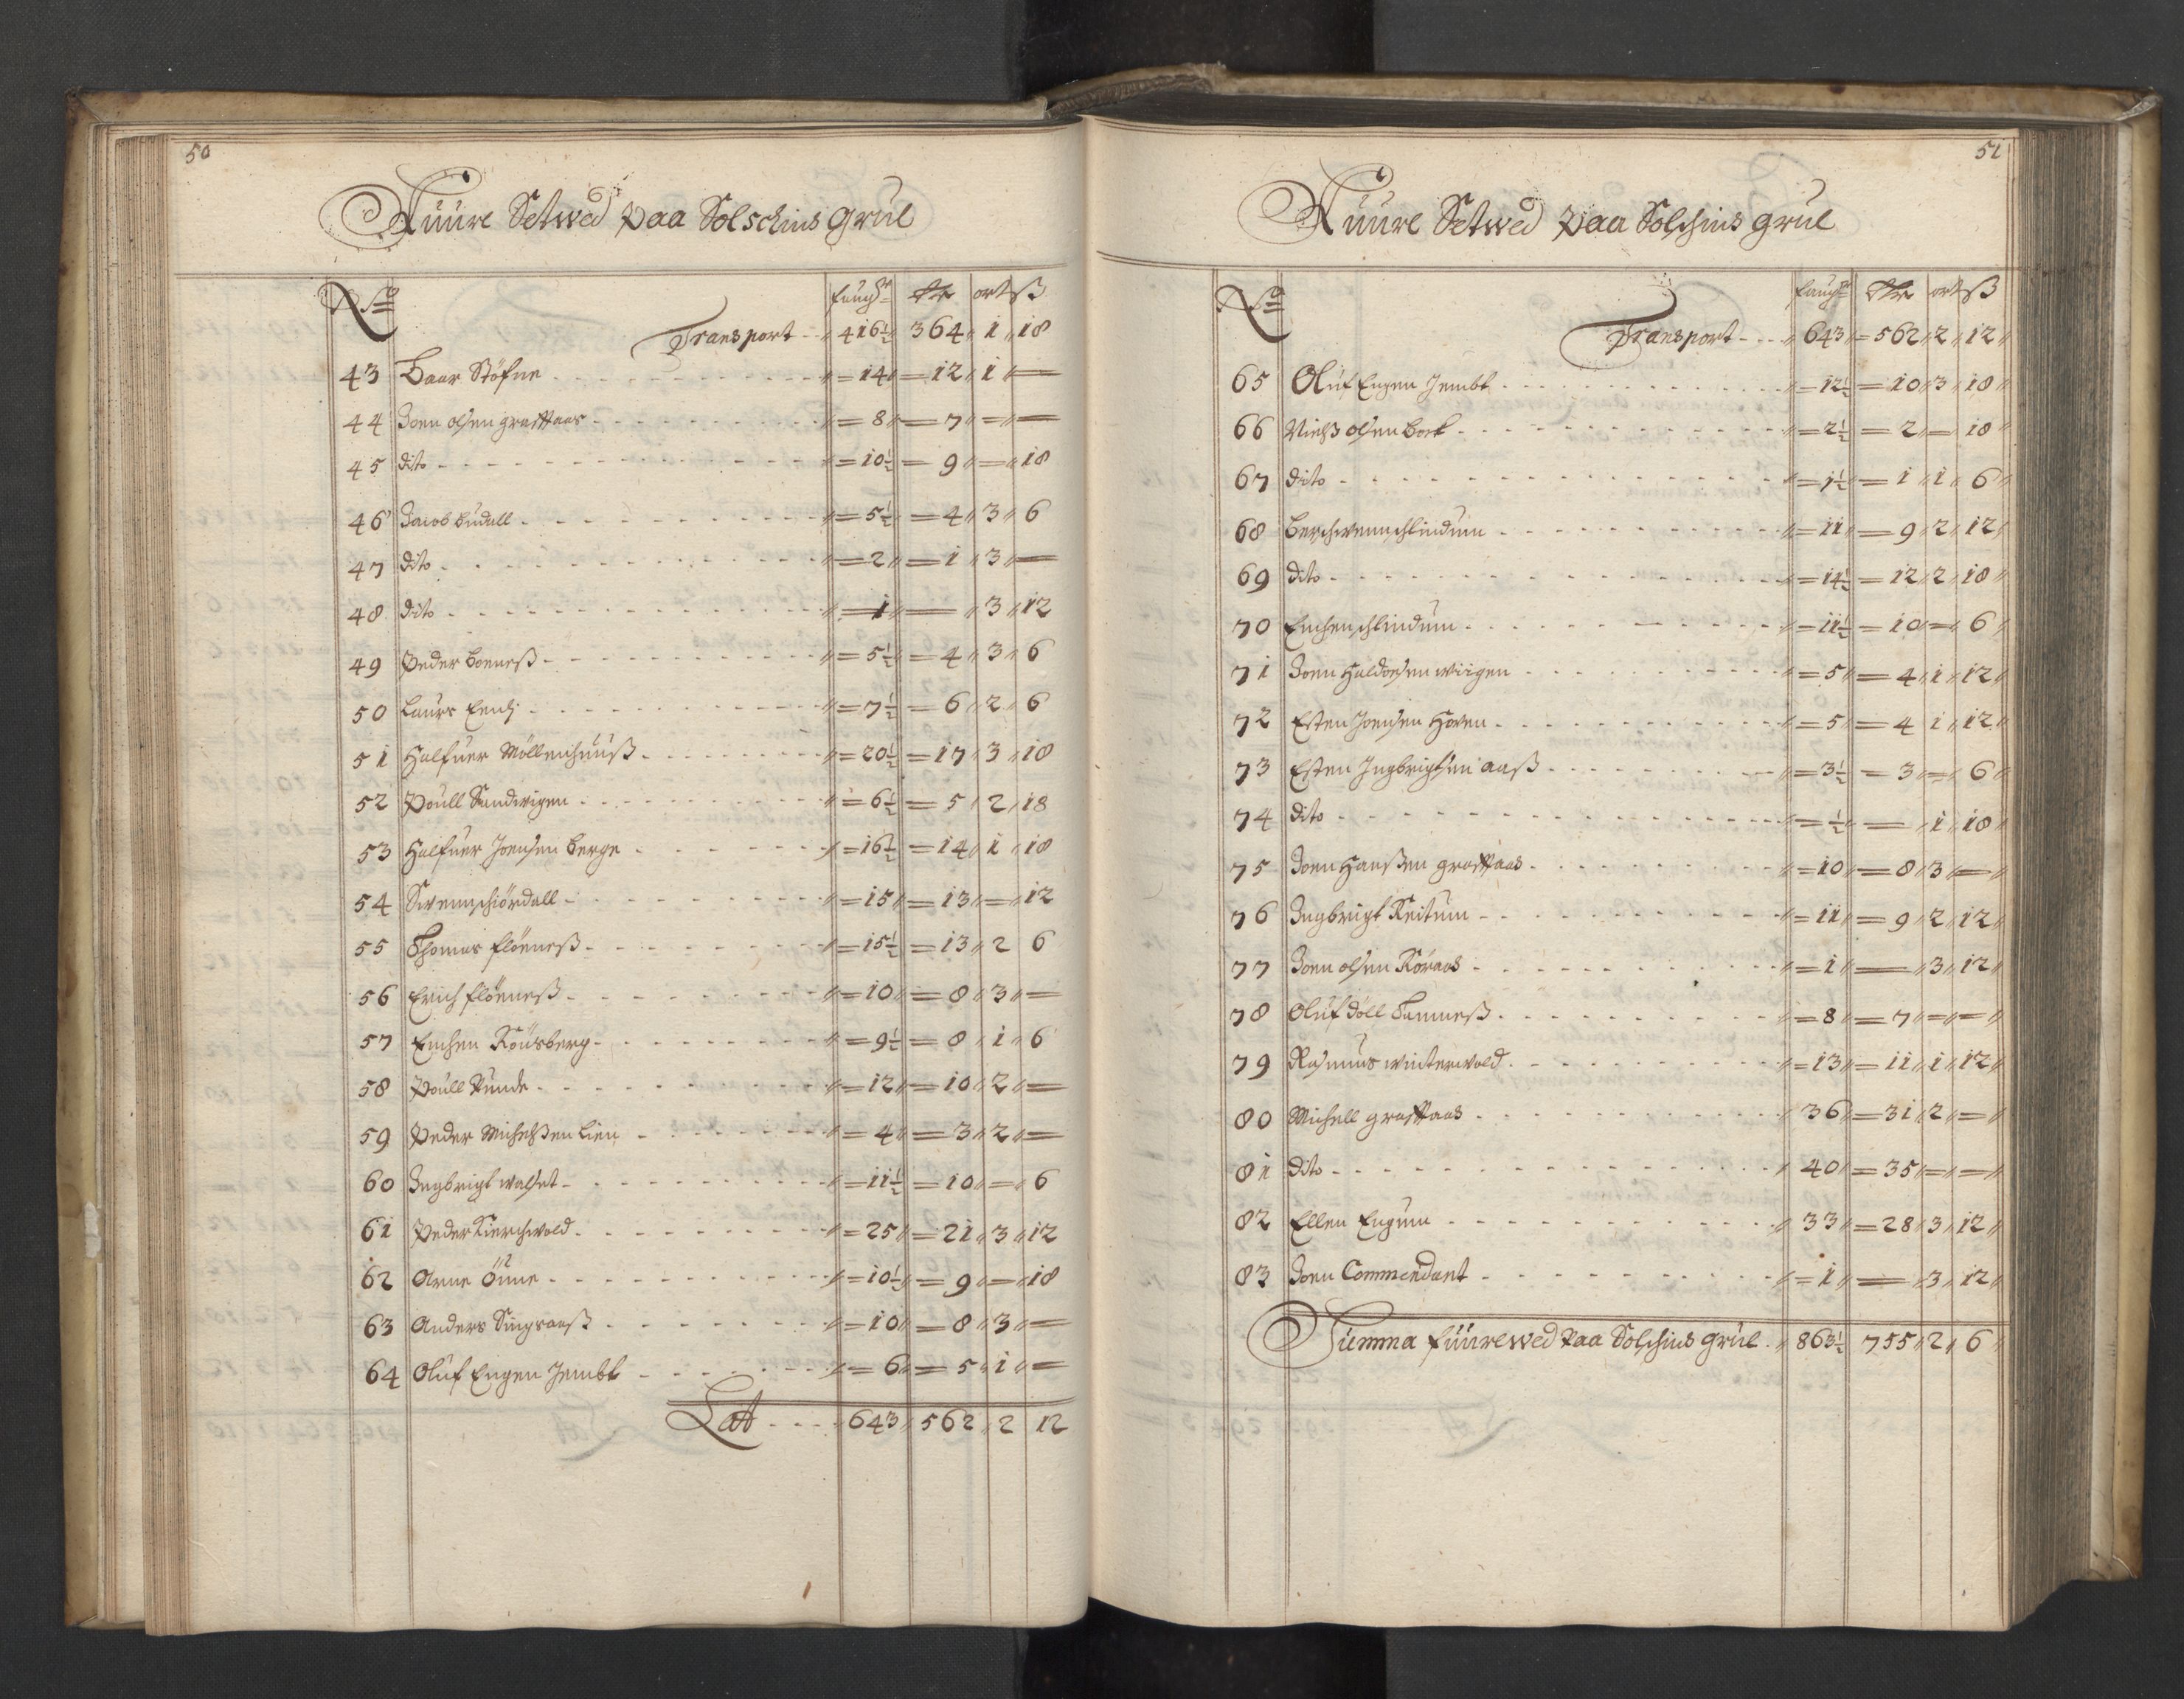 50
Fuure Setwed paa Solschins grue
No faugr Rdr ort ß
Transport 416½ 364 1 18
43 Baar Stöfne 14 12 1
44 Joen olsen graffaas 8 7
45 dito 10½ 9 18
46 Jacob budall 5½ 4 3 6
47 dito 2 1 3
48 dito 1 3 12
49 Peder boeneß 5½ 4 3 6
50 Laurs 7½ 6 2 6
51 Halfuer Möllenhuuß 20½ 17 3 18
52 Poull Sandwigen 6½ 5 2 18
53 Halfuer Joensen berge 16½ 14 1 18
54 Swennschiördall 15 13 12
55 Thomas flöeneß 15½ 13 2 6
56 Erich flöeneß 10 8 3
57 Enchen Röusberg 9½ 8 1 6
58 Poull Runde 12 10 2
59 Peder Michelßen Lien 4 3 2
60 Ingbrigt walset 11½ 10 6
61 Peder Kierchwold 25 21 3 12
62 Arne Öüne 10½ 9 18
63 Anders Singsaaß 10 8 3
64 Oluf Engen Jembt 6 5 1
Lat 643 562 2 12
51
Fuure Setwed paa Solschins grue
No faugr Rdr ort ß
Transport 643 562 2 12
65 Oluf Engen Jembt 12½ 10 3 18
66 Nielß olsen bork 2½ 2 18
67 dito 1½ 1 1 6
68 berchwennschlindum 11 9 2 12
69 dito 14½ 12 2 18
70 Enchenschlindum 11½ 10 6
71 Joen Haldoesen wiigen 5 4 1 12
72 Esten Joensen Hoven 5 4 1 12
73 Esten Ingbrigtsen aaß 3½ 3 6
74 dito ½ 1 18
75 Joen Hanßen graffaas 10 8 3
76 Ingbrigt Reitum 11 9 2 12
77 Joen olsen Röraas 1 3 12
78 Oluf döll Tamneß 8 7
79 Rasmus winterwold 13 11 1 12
80 Michell graffaas 36 31 2
81 dito 40 35
82 Ellen Engum 33 28 3 12
83 Joen Commendant 1 3 12
Summa fuurewed paa Solschins grue 863½ 755 2 6